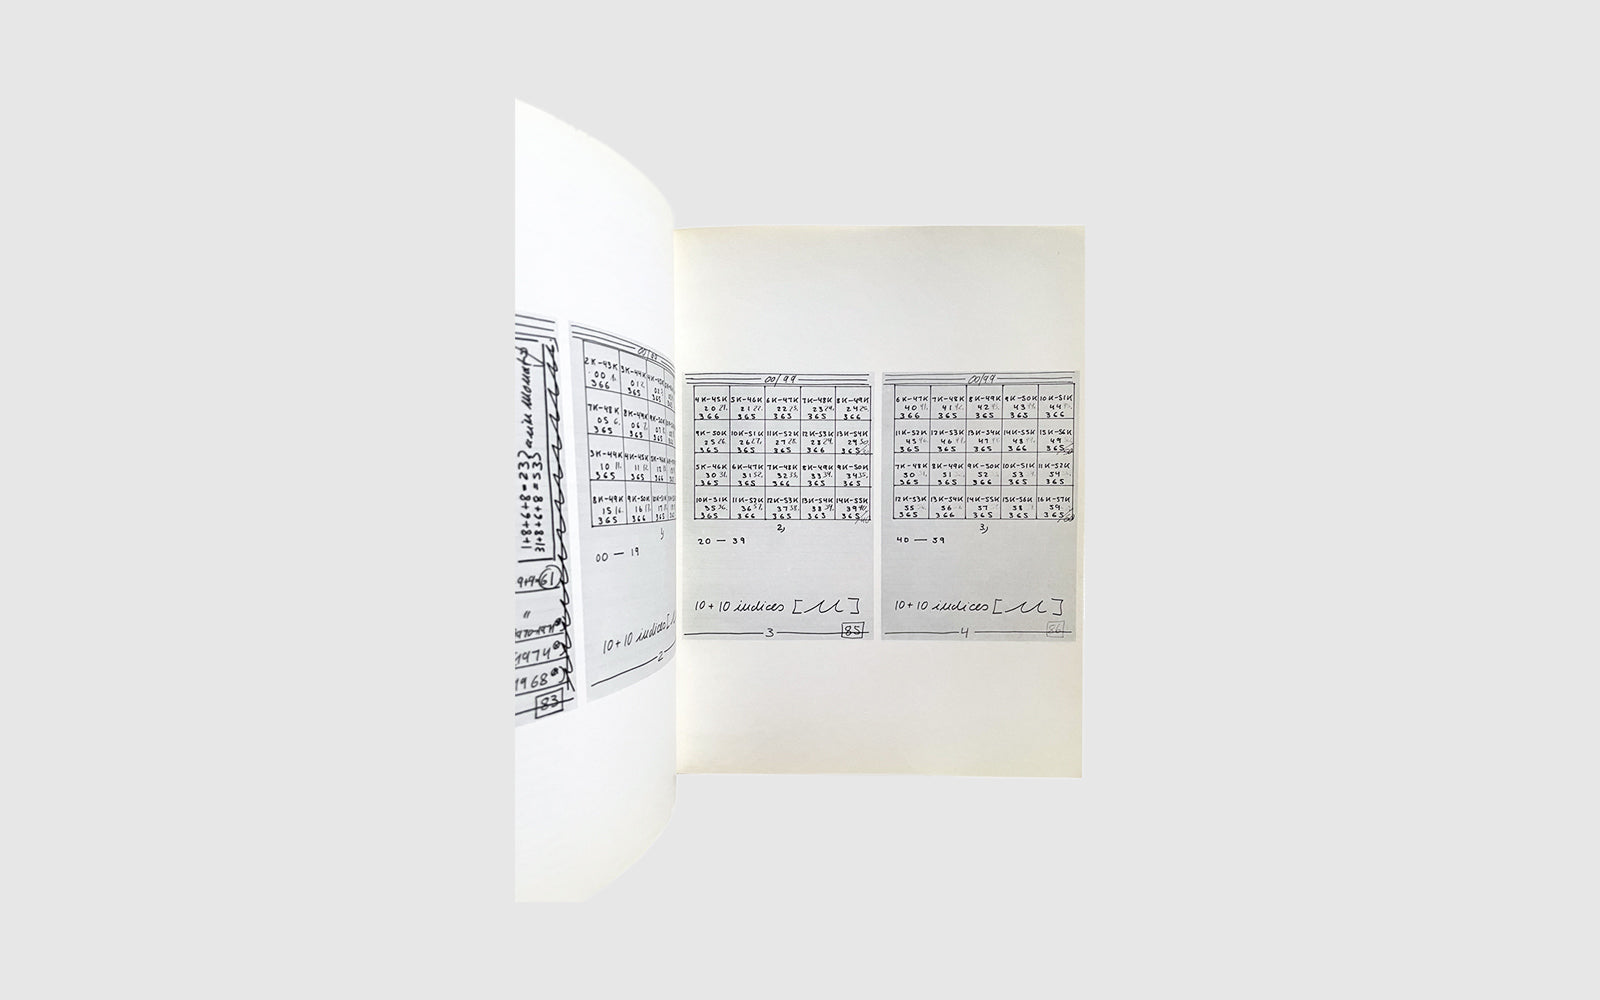 1+8+6+8=23
31+8+6+8=53
9+9=61
"
1974
1968
83
00/85
2K-43K 3K-44K
00 1. 01 2. 02
366 365 365
7K-48K 8K-49K 9K-50K
05 6. 06 7. 07
365 365 365
3K-44K 4K-45K 5K-46K
10 11. 11 12. 12
365 365 366
8K-49K 9K-50K
15 16. 16 17. 17
365 366 365
1)
00 — 19
10+10 indices [
2
00/99
4K-45K 5K-46K 6K-47K 7K-48K 8K-49K
20 21. 21 22. 22 23. 23 24. 24 25.
366 365 365 365 366
9K-50K 10K-51K 11K-52K 12K-53K 13K-54K
25 26. 26 27. 27 28. 28 29. 29 30.
365 365 365 366 365
5K-46K 6K-47K 7K-48K 8K-49K 9K-50K
30 31. 31 32. 32 33. 33 34. 34 35.
365 365 366 365 365
10K-51K 11K-52K 12K-53K 13K-54K 14K-55K
35 36. 36 37. 37 38. 38 39. 39 40.
365 366 365 365 365
2)
20 — 39
10+10 indices [ ]
3 85
00/99
6K-47K 7K-48K 8K-49K 9K-50K 10K-51K
40 41. 41 42. 42 43. 43 44. 44 45.
366 365 365 365 366
11K-52K 12K-53K 13K-54K 14K-55K 15K-56K
45 46. 46 47. 47 48. 48 49. 49
365 365 365 366 365
7K-48K 8K-49K 9K-50K 10K-51K 11K-52K
50 51 52 53 54
365 365 366 365 365
12K-53K 13K-54K 14K-55K 15K-56K 16K-57K
55 56 57 58 59
365 366 365 365 365
3)
40 — 59
10+10 indices [ ]
4 86